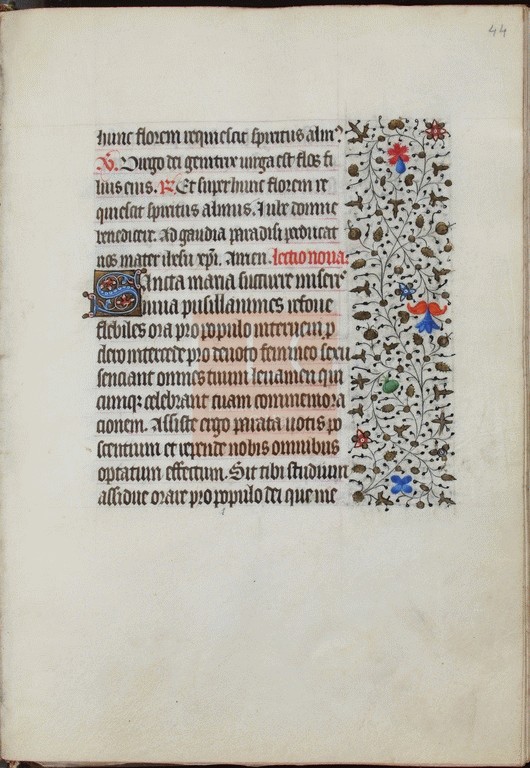 44
hunc florem requiescit spiritus alm⁹
V. Virgo dei genitrix virga est flos fi
lius eius. R. Et super hunc florem re
quiescit spiritus almus. Iube domne
benedicere. Ad gaudia paradisi perducat
nos mater ihesu xp̄i. Amen. lectio nona.
Sancta maria succurre miser̾
iuua pusillanimes refoue
flebiles ora pro populo interueni p̄
clero intercede pro deuoto femineo sexu
senciant omnes tuum leuamen qui
cumq̄ celebrant tuam commemora
cionem. Assiste ergo parata uotis po
scentium et repende nobis omnibus
optatum effectum. Sit tibi studium
assidue orare pro populo dei que me